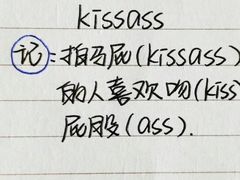 kissass
记:拍马屁(kissass)
的人喜欢吻(kiss)
屁股(ass).